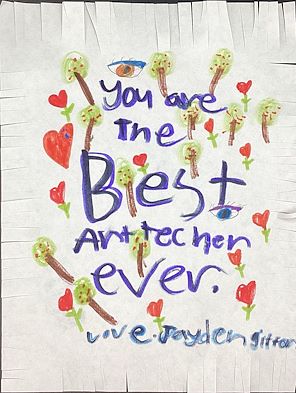 You are
The
Best
Art techer
ever.
Love. Jayden